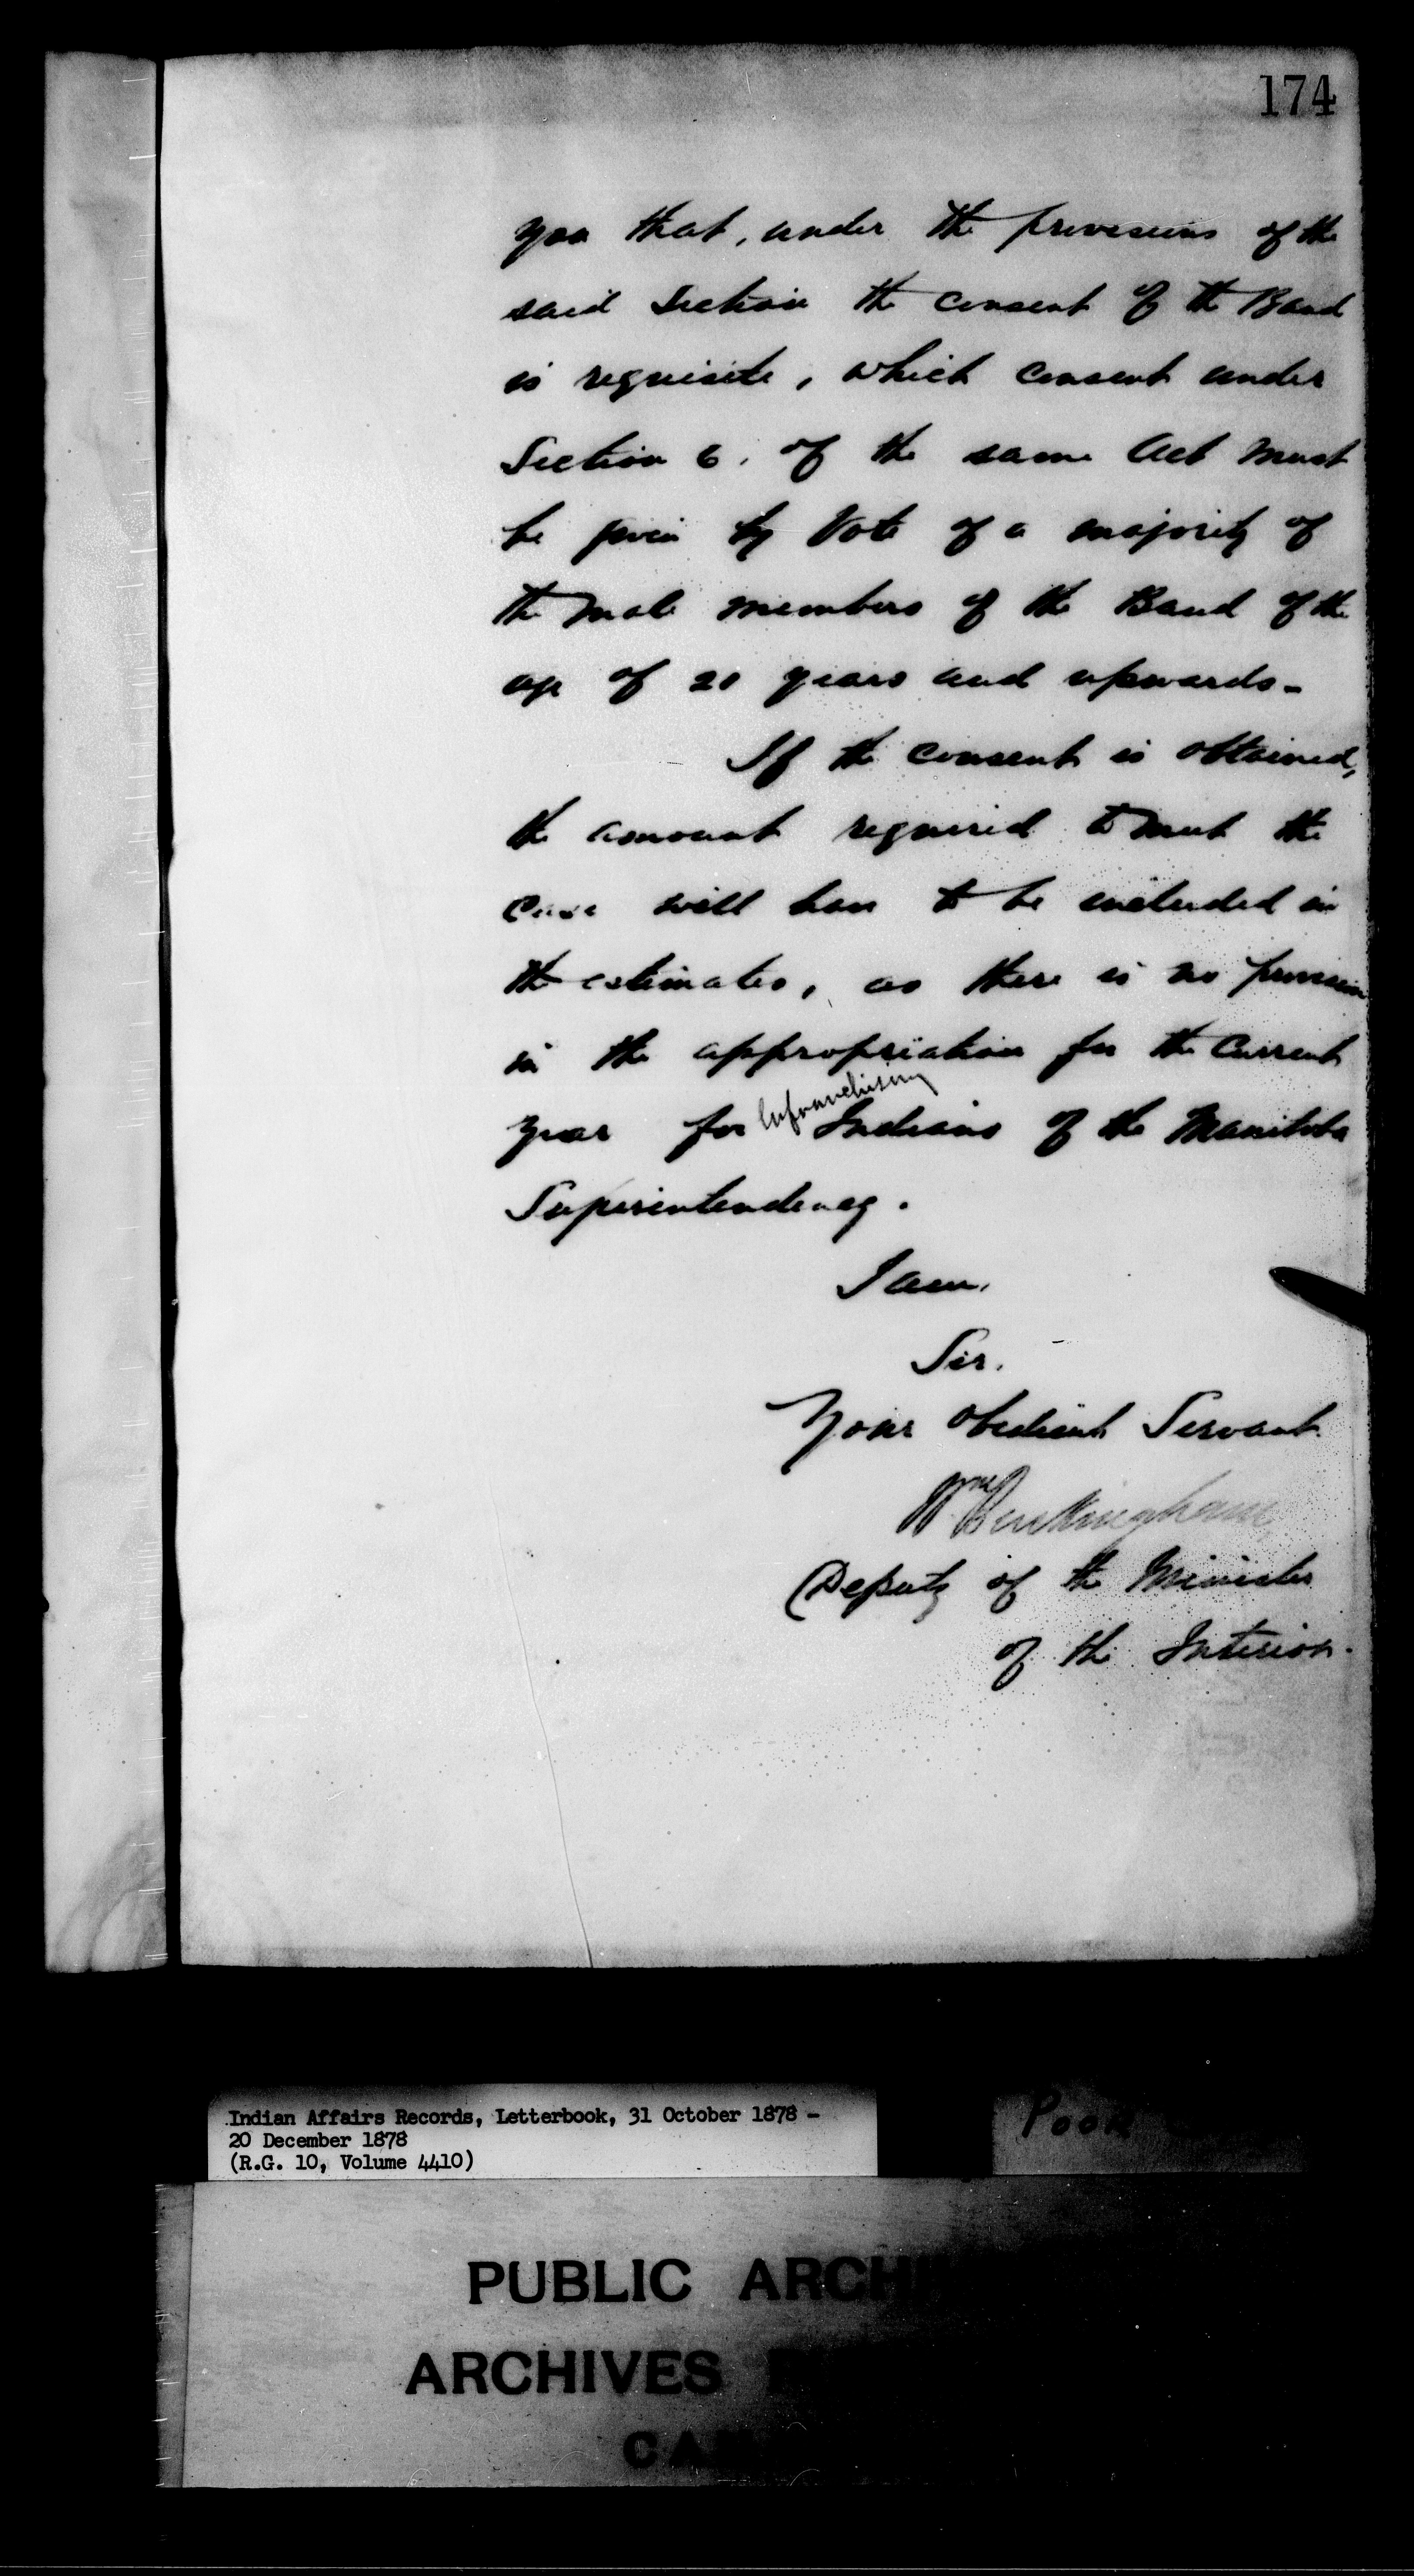 174
you that, under the provisions of the
said Section the consent of the Band
is requisite, which consent under
Section 6. of the same Act must
be given by Vote of a majority of
the male members of the Band of the
age of 20 years and upwards-
If the consent is obtained,
the amount required to meet the
case will have to be included in
the estimates, as there is no provision
in the appropriation for the Current
Enfranchising
year for Indians of the Manitoba
Superintendency.
I am.
Sir.
Your Obedient Servant
Wm Buckingham
Deputy of the Minister
of the Interior.
Indian Affairs Records, Letterbook, 31 October 1878 -
20 December 1878
(R.G. 10, Volume 4410)
PUBLIC ARCHI
ARCHIVES
CA